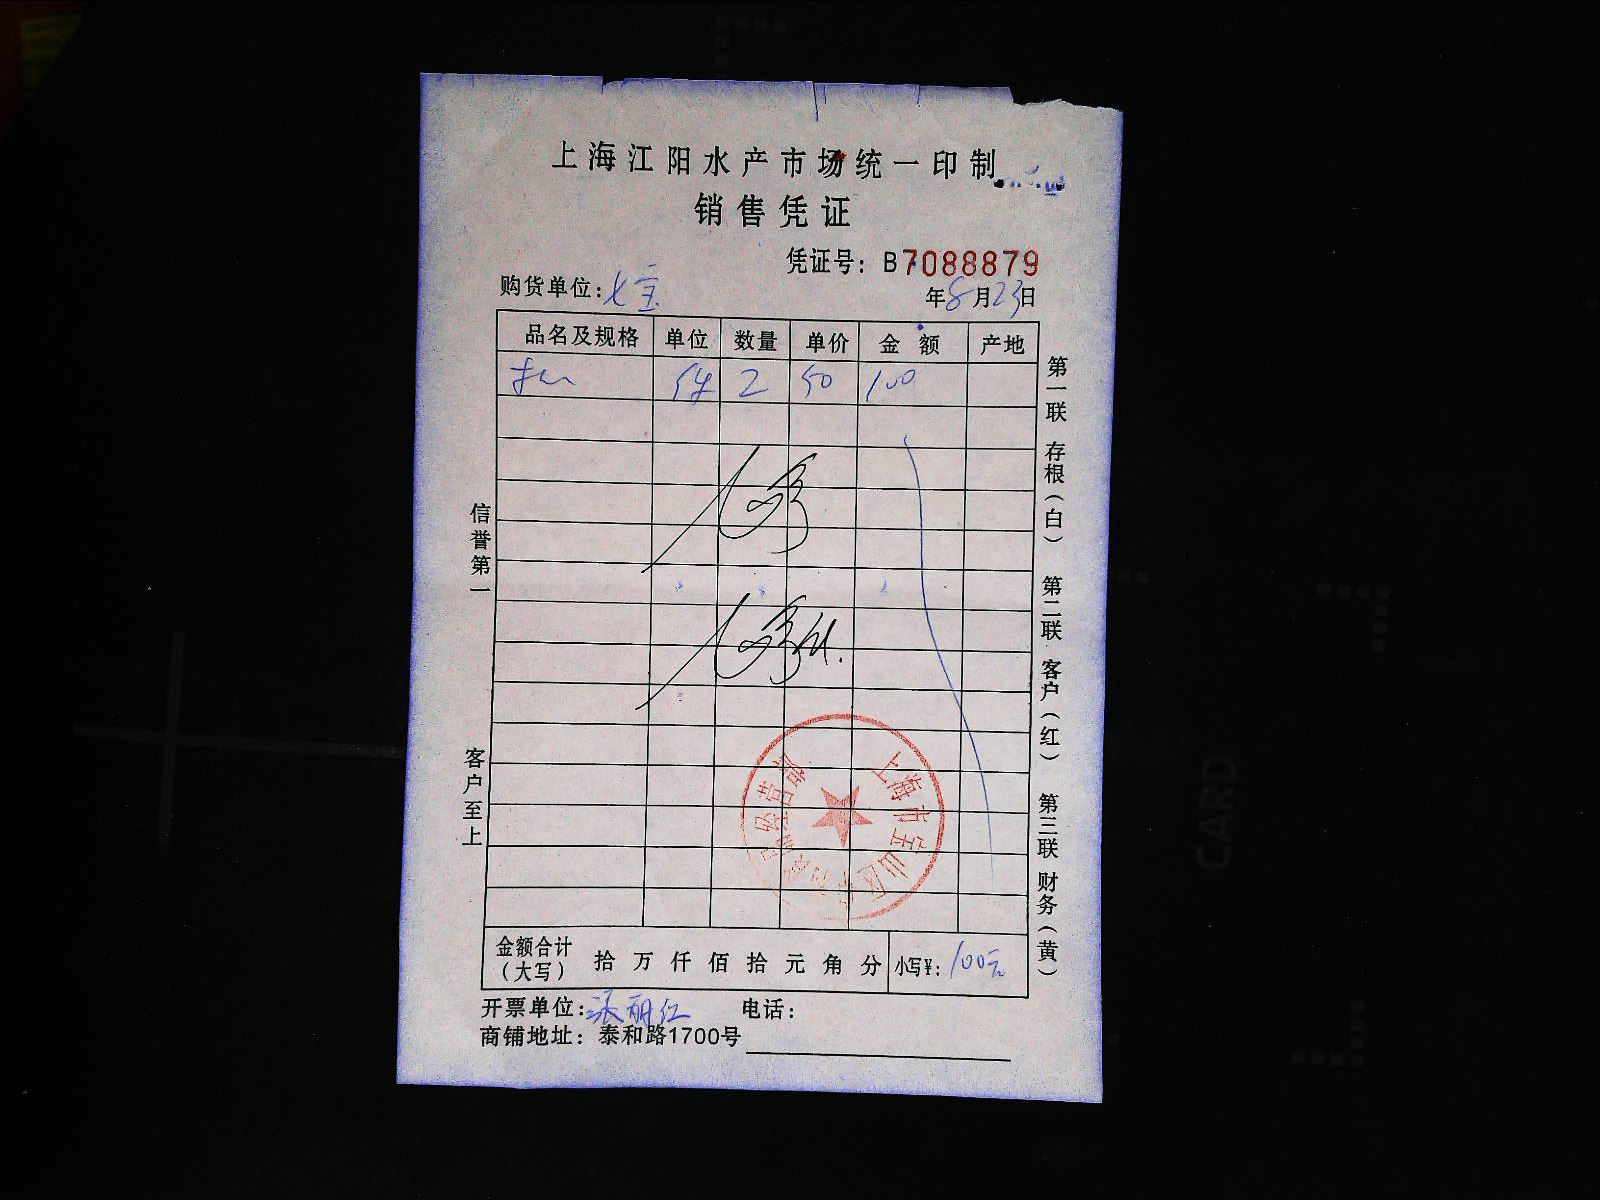 上海江阳水产市场统一印制
销售凭证
凭证号：B7088879
购货单位：七宝
年8月23日
品名及规格 单位 数量 单价 金额 产地
2 50 100
信誉第一
客户至上
第一联 存根（白） 第二联 客户（红） 第三联 财务（黄）
上海市宝山区
经营部
金额合计（大写） 拾 万 仟 佰 拾 元 角 分 小写¥：100元
开票单位：张丽红 电话：
商铺地址：泰和路1700号